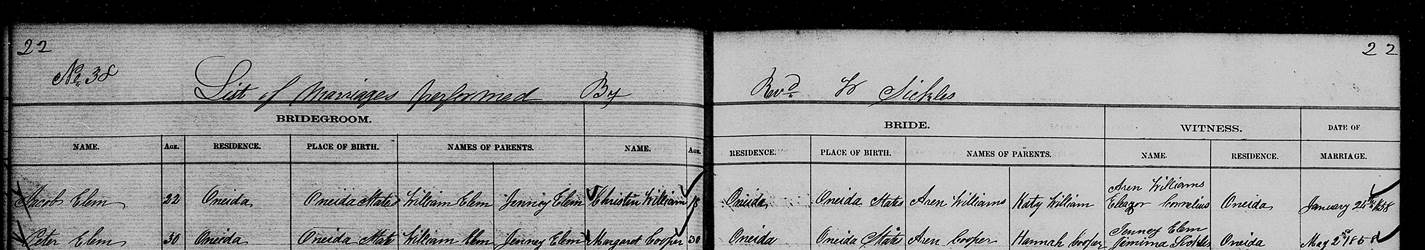 22 22
No 38
List of Marriages performed By Revd W Sickles
BRIDEGROOM. BRIDE. WITNESS. DATE OF MARRIAGE.
NAME. AGE. RESIDENCE. PLACE OF BIRTH. NAMES OF PARENTS. NAME. AGE. RESIDENCE. PLACE OF BIRTH. NAMES OF PARENTS. NAME. RESIDENCE.
Jacob Elem 22 Oneida Oneida States William Elem Jenney Elem Christin William 18 Oneida Oneida States Aren Williams Katy William Aren Williams Eleazor Cornelius Oneida January 24th 1858
Peter Elem 30 Oneida Oneida State William Elem Jenney Elem Margaret Cooper 30 Oneida Oneida States Aren Cooper Hannah Cooper Jenney Elem Jemima Oneida May 2nd 1858